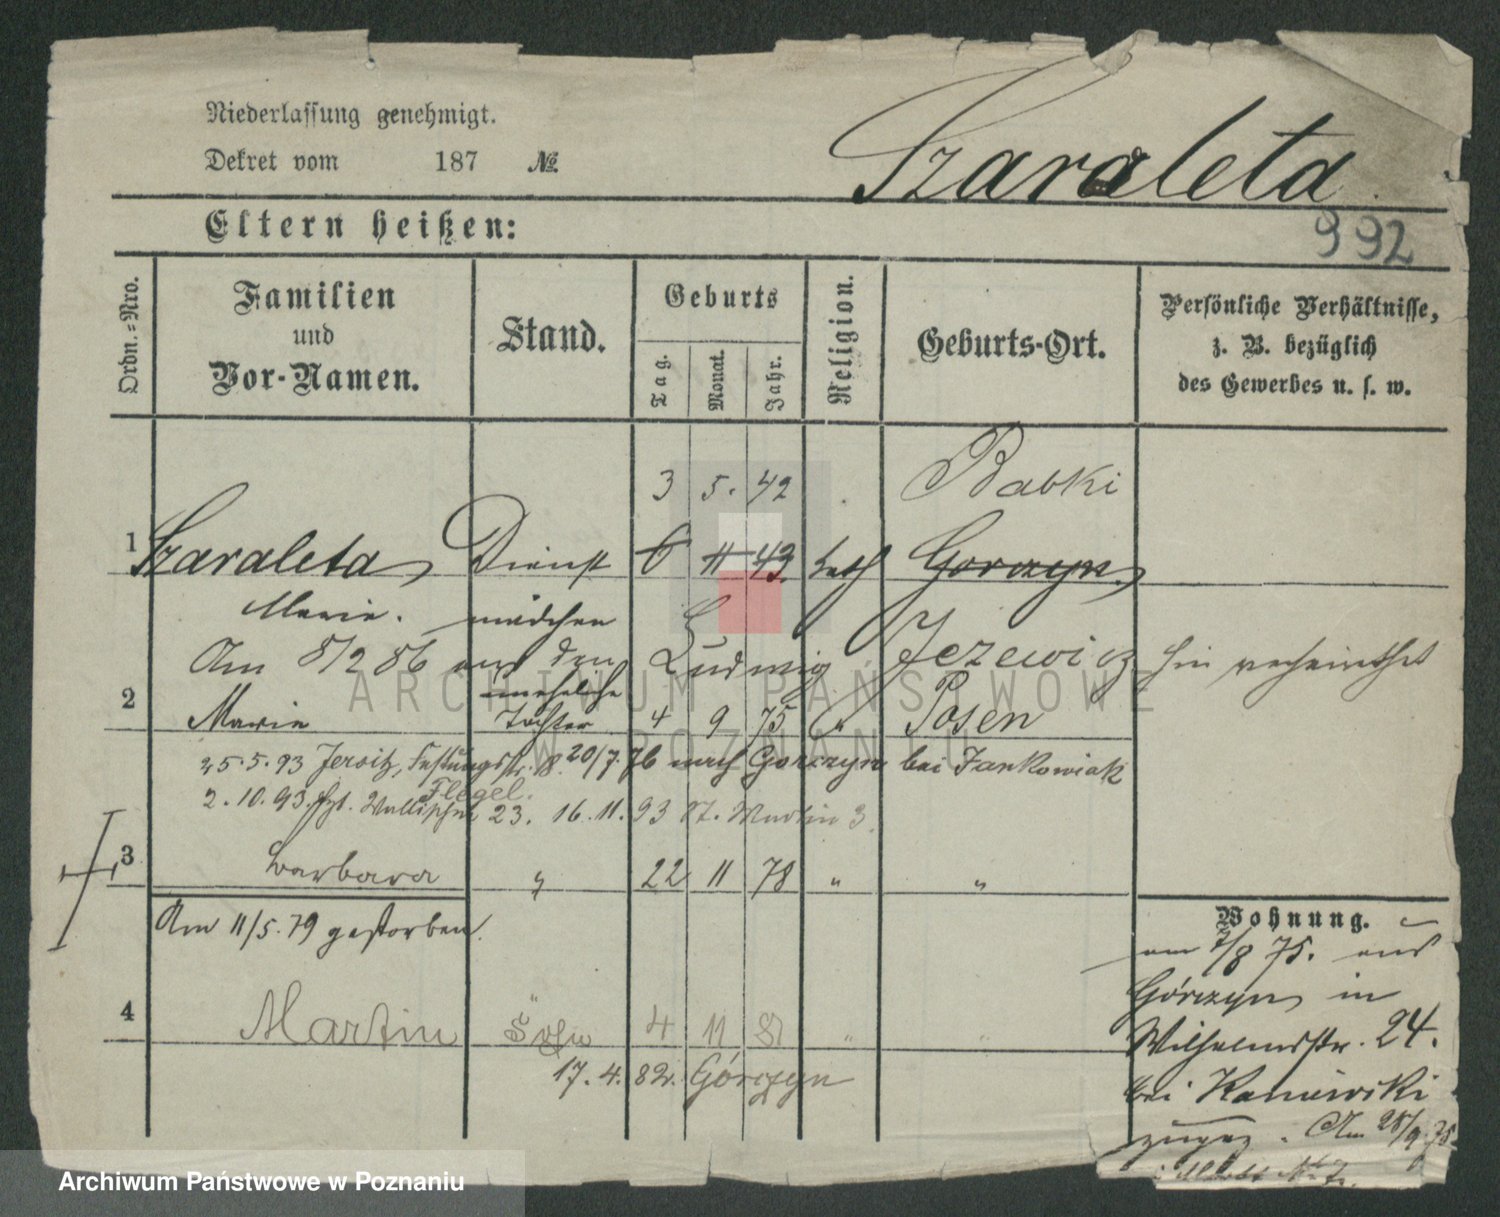 Niederlassung genehmigt.
Dekret vom 187 №
Szaraleta
992
Eltern heißen:
Ordn.=Nro.
Familien
und
Vor-Namen.
Stand.
Geburts
Tag.
Monat.
Jahr.
Religion.
Geburts-Ort.
Persönliche Verhältnisse,
z. B. bezüglich
des Gewerbes u. s. w.
3 5. 42 Babki
1 Szaraleta Dienst 6 11 43 kath Gorczyn
Marie. mädchen
Am 8/2 86 den Ludwig Jezewicz hier verheirathet
uneheliche
2 Marie Tochter 4 9 75 " Posen
25.5.93 Jersitz, Festungsstr. 8. 20/7. 76 nach Gorczyn bei Jankowiak
Flegel.
2.10.93 Wallischei 23. 16.11.93 St. Martin 3.
3 Barbara " 22 11 78 " "
Am 11/5.79 gestorben.
Wohnung.
am 7/8 75. aus
Górczyn in
Wilhelmstr. 24.
bei
zugez. Am 28/9 75
4 Martin Sohn 4 11 81 " "
17.4.82. Górczyn
ARCHIWUM PAŃSTWOWE
W POZNANIU
Archiwum Państwowe w Poznaniu